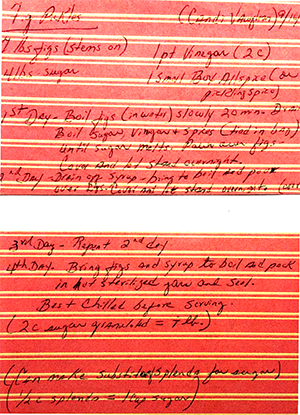 Fig Pickles (Candi Vaughn) 9/14
7 lbs figs (stems on) 1 pt Vinegar (2 c)
4 lbs sugar 1 small Box Allspice (or
pickling spice)
1st Day - Boil figs (in water) slowly 20 min. Drain
Boil Sugar, Vinegar & Spices (tied in bag)
until sugar melts. Pour over figs-
Cover and let stand overnight.
2nd Day - Drain off syrup - bring to boil and pour
over figs. Cover and let stand overnight
3rd Day - Repeat 2nd day.
4th Day - Bring figs and syrup to boil and pack
in hot sterilized jars and seal.
Best Chilled before Serving.
(2c sugar granulated = 1 lb.)
(Can make substitute Splenda for sugar)
(1/2c splenda = 1 cup sugar)